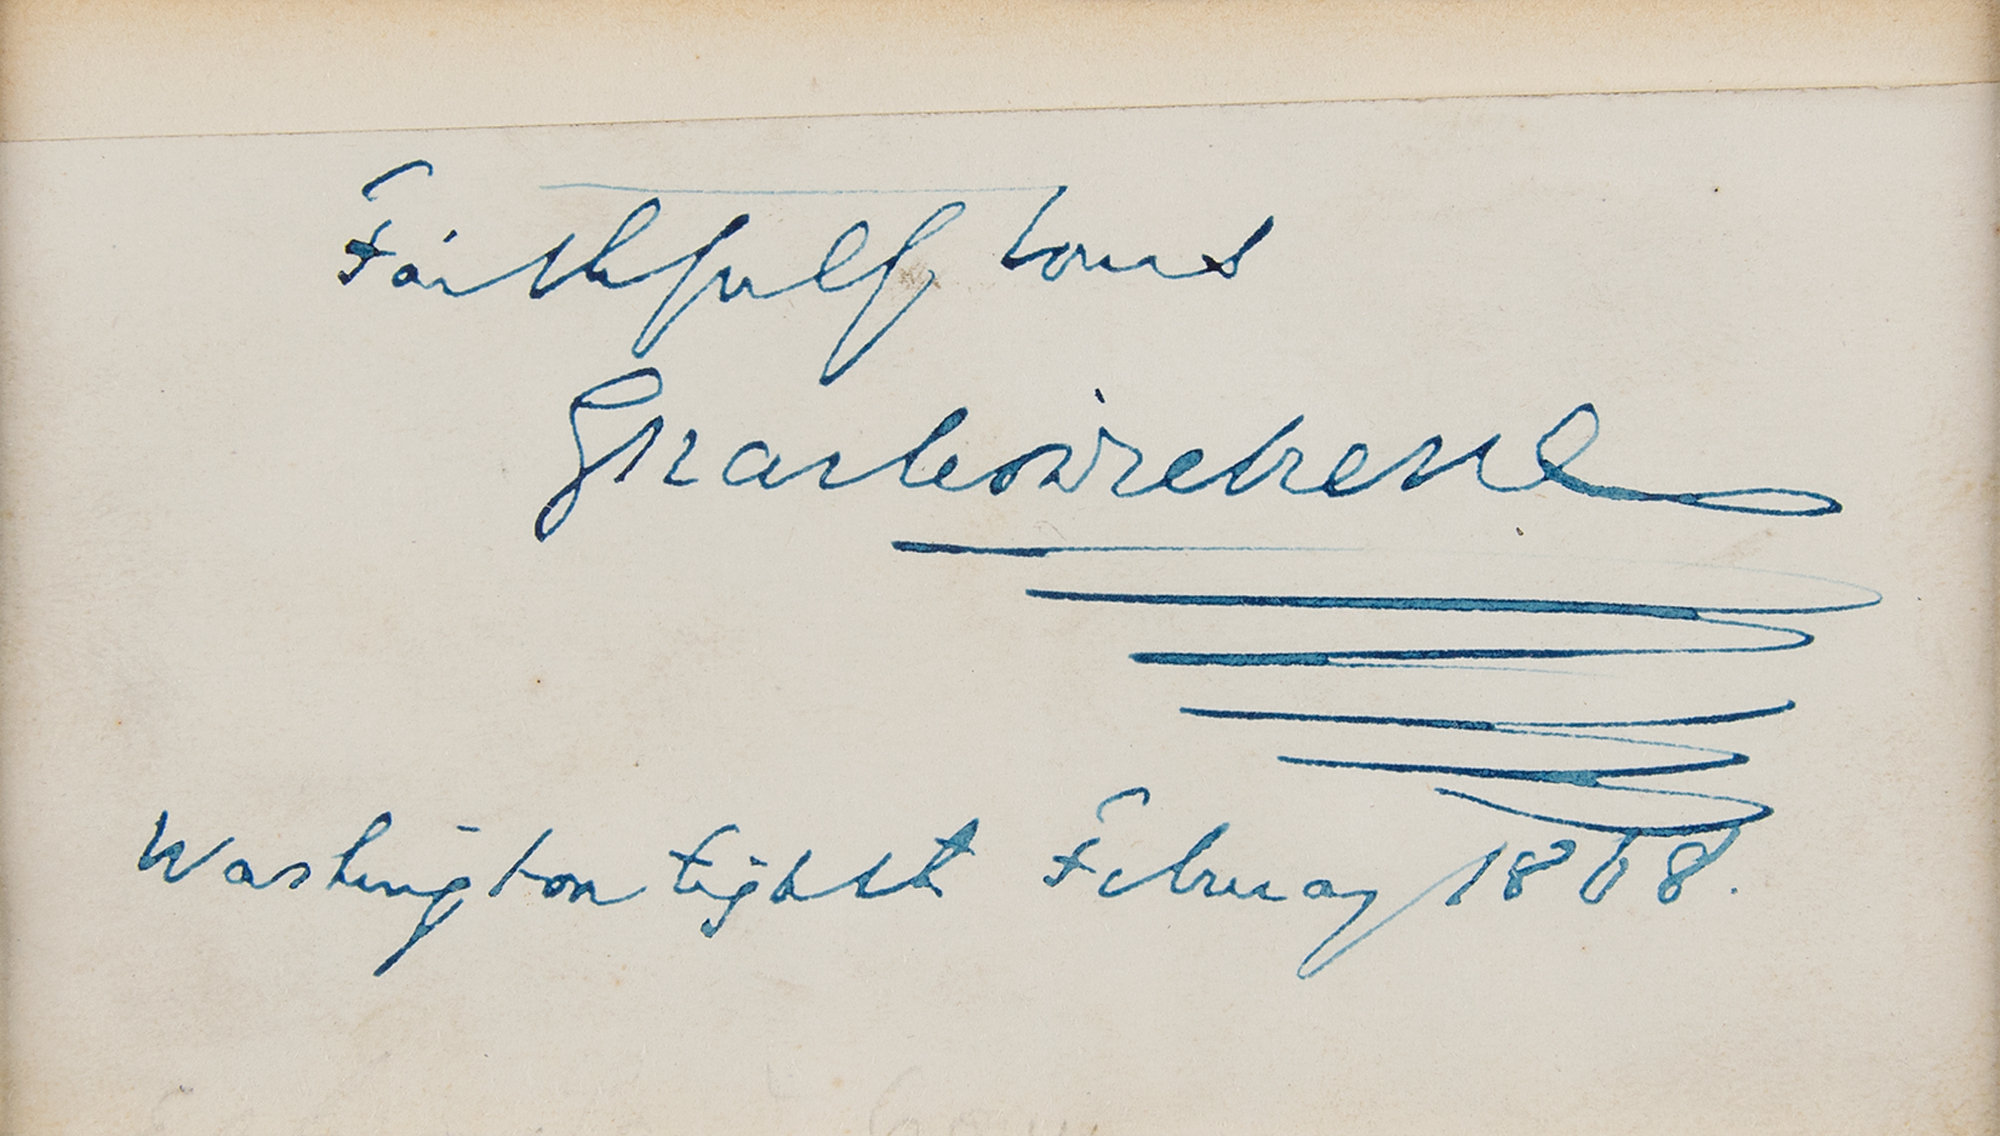 Faithfully Yours
Charles Dickens
Washington Eighth February 1868.